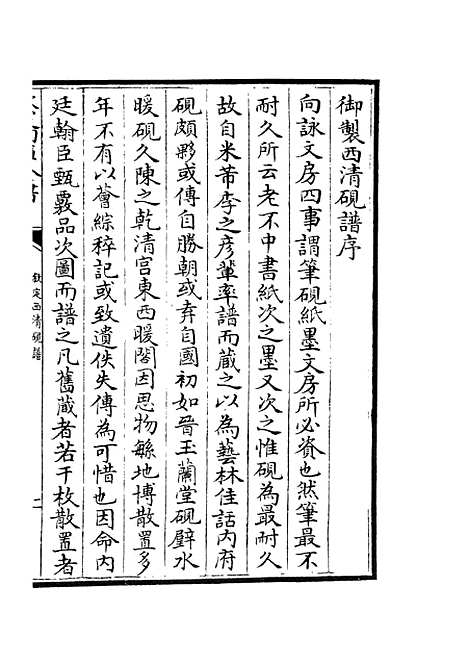 御製西清硯譜序
向詠文房四事謂筆硯紙墨文房所必資也然筆最不
耐久所云老不中書紙次之墨又次之惟硯為最耐久
故自米芾李之彦輩率譜而藏之以為藝林佳話内府
硯頗夥或傳自勝朝或弆自國初如晉玉蘭堂硯璧水
暖硯久陳之乾清宮東西暖閣因思物緐地博散置多
年不有以薈綜稡記或致遺佚失傳為可惜也因命内
廷翰臣甄覈品次圖而譜之凡舊藏者若干枚散置者
欽定西清硯譜